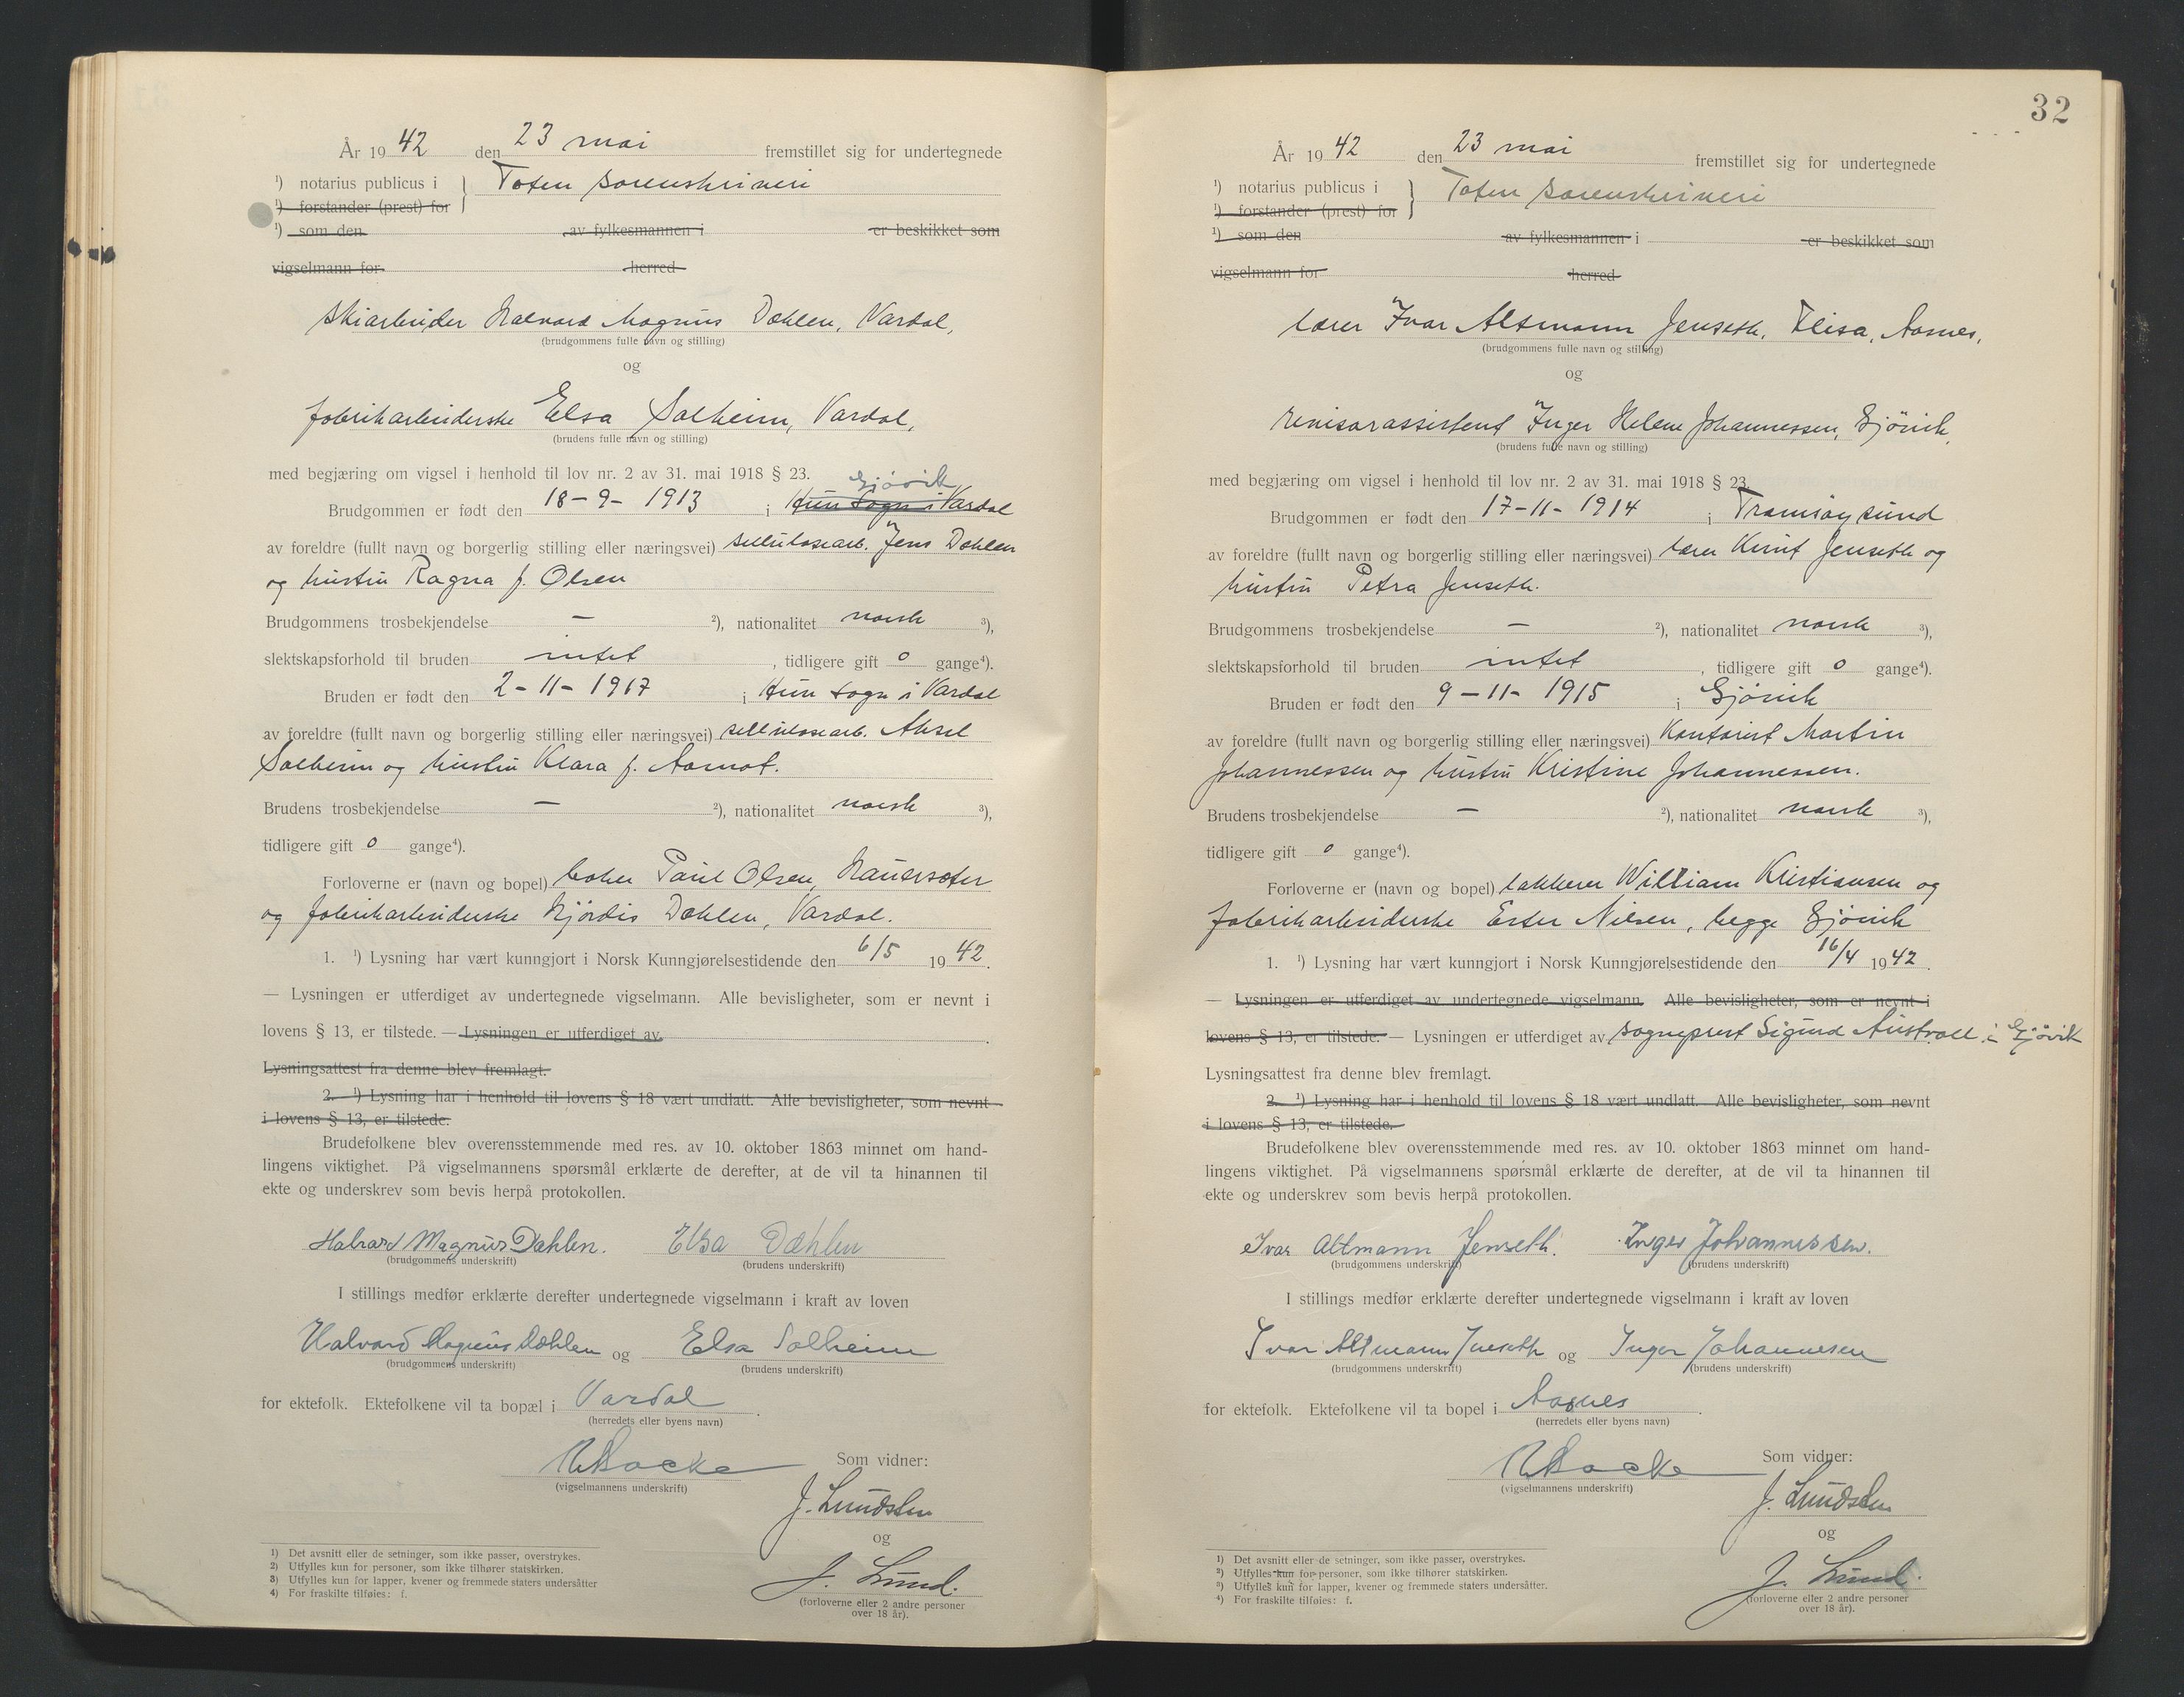 År 19 42 den 23 mai fremstillet sig for undertegnede
¹) notarius publicus i } Toten sorenskriveri
¹) forstander (prest) for
¹) som den av fylkesmannen i er beskikket som
vigselmann for herred
skiarbeider Halvard Magnus Dæhlen, Vardal,
(brudgommens fulle navn og stilling)
og
fabrikarbeiderske Elsa Solheim, Vardal,
(brudens fulle navn og stilling)
med begjæring om vigsel i henhold til lov nr. 2 av 31. mai 1918 § 23.
Gjøvik
Brudgommen er født den 18-9-1913 i Hun sogn i Vardal
av foreldre (fullt navn og borgerlig stilling eller næringsvei) cellulosearb. Jens Dæhlen
og hustru Ragna f. Olsen
Brudgommens trosbekjendelse — ²), nationalitet norsk ³),
slektskapsforhold til bruden intet , tidligere gift 0 gange⁴).
Bruden er født den 2-11-1917 i Hun sogn i Vardal
av foreldre (fullt navn og borgerlig stilling eller næringsvei) cellulosearb. Aksel
Solheim og hustru Klara f. Aamot.
Brudens trosbekjendelse — ²), nationalitet norsk ³),
tidligere gift 0 gange⁴).
Forloverne er (navn og bopel) baker Paul Olsen,
og fabrikarbeiderske Hjördis Dæhlen, Vardal.
1. ¹) Lysning har vært kunngjort i Norsk Kunngjørelsestidende den 6/5 19 42.
— Lysningen er utferdiget av undertegnede vigselmann. Alle bevisligheter, som er nevnt i
lovens § 13, er tilstede. — Lysningen er utferdiget av .
Lysningsattest fra denne blev fremlagt.
2. ¹) Lysning har i henhold til lovens § 18 vært undlatt. Alle bevisligheter, som nevnt
i lovens § 13, er tilstede.
Brudefolkene blev overensstemmende med res. av 10. oktober 1863 minnet om hand-
lingens viktighet. På vigselmannens spørsmål erklærte de derefter, at de vil ta hinannen til
ekte og underskrev som bevis herpå protokollen.
Halvard Magnus Dæhlen. Elsa Dæhlen
(brudgommens underskrift) (brudens underskrift)
I stillings medfør erklærte derefter undertegnede vigselmann i kraft av loven
Halvard Magnus Dæhlen og Elsa Solheim
(brudgommens underskrift) (brudens underskrift)
for ektefolk. Ektefolkene vil ta bopæl i Vardal .
(herredets eller byens navn)
Som vidner:
(vigselmannens underskrift)
J. Lundsten
og
J. Lund.
(forloverne eller 2 andre personer
over 18 år).
1) Det avsnitt eller de setninger, som ikke passer, overstrykes.
2) Utfylles kun for personer, som ikke tilhører statskirken.
3) Utfylles kun for lapper, kvener og fremmede staters undersåtter
4) For fraskilte tilføies: f.
32
År 19 42 den 23 mai fremstillet sig for undertegnede
¹) notarius publicus i } Toten sorenskriveri
¹) forstander (prest) for
¹) som den av fylkesmannen i er beskikket som
vigselmann for herred
lærer Ivar Altmann Jenseth, Flisa, Aasnes,
(brudgommens fulle navn og stilling)
og
revisorassistent Inger Helene Johannessen, Gjövik,
(brudens fulle navn og stilling)
med begjæring om vigsel i henhold til lov nr. 2 av 31. mai 1918 § 23.
Brudgommen er født den 17-11-1914 i Tromsøysund
av foreldre (fullt navn og borgerlig stilling eller næringsvei) lærer Knut Jenseth og
hustru Petra Jenseth.
Brudgommens trosbekjendelse — ²), nationalitet norsk ³),
slektskapsforhold til bruden intet , tidligere gift 0 gange⁴).
Bruden er født den 9-11-1915 i Gjövik
av foreldre (fullt navn og borgerlig stilling eller næringsvei) Kontorist Martin
Johannessen og hustru Kristine Johannessen.
Brudens trosbekjendelse — ²), nationalitet norsk ³),
tidligere gift 0 gange⁴).
Forloverne er (navn og bopel) lakkerer William Kristiansen og
fabrikarbeiderske Ester Nilsen, begge Gjövik
1. ¹) Lysning har vært kunngjort i Norsk Kunngjørelsestidende den 16/4 19 42.
— Lysningen er utferdiget av undertegnede vigselmann. Alle bevisligheter, som er nevnt i
lovens § 13, er tilstede. — Lysningen er utferdiget av sogneprest Sigurd Austvoll i Gjøvik
Lysningsattest fra denne blev fremlagt.
2. ¹) Lysning har i henhold til lovens § 18 vært undlatt. Alle bevisligheter, som nevnt
i lovens § 13, er tilstede.
Brudefolkene blev overensstemmende med res. av 10. oktober 1863 minnet om hand-
lingens viktighet. På vigselmannens spørsmål erklærte de derefter, at de vil ta hinannen til
ekte og underskrev som bevis herpå protokollen.
Ivar Altmann Jenseth. Inger Johannessen.
(brudgommens underskrift) (brudens underskrift)
I stillings medfør erklærte derefter undertegnede vigselmann i kraft av loven
Ivar Altmann Jenseth og Inger Johannesen
(brudgommens underskrift) (brudens underskrift)
for ektefolk. Ektefolkene vil ta bopel i Aasnes .
(herredets eller byens navn)
Som vidner:
(vigselmannens underskrift)
J. Lundsten
og
J. Lund.
(forloverne eller 2 andre personer
over 18 år).
¹) Det avsnitt eller de setninger, som ikke passer, overstrykes.
²) Utfylles kun for personer, som ikke tilhører statskirken.
³) Utfylles kun for lapper, kvener og fremmede staters undersåtter.
⁴) For fraskilte tilføies: f.